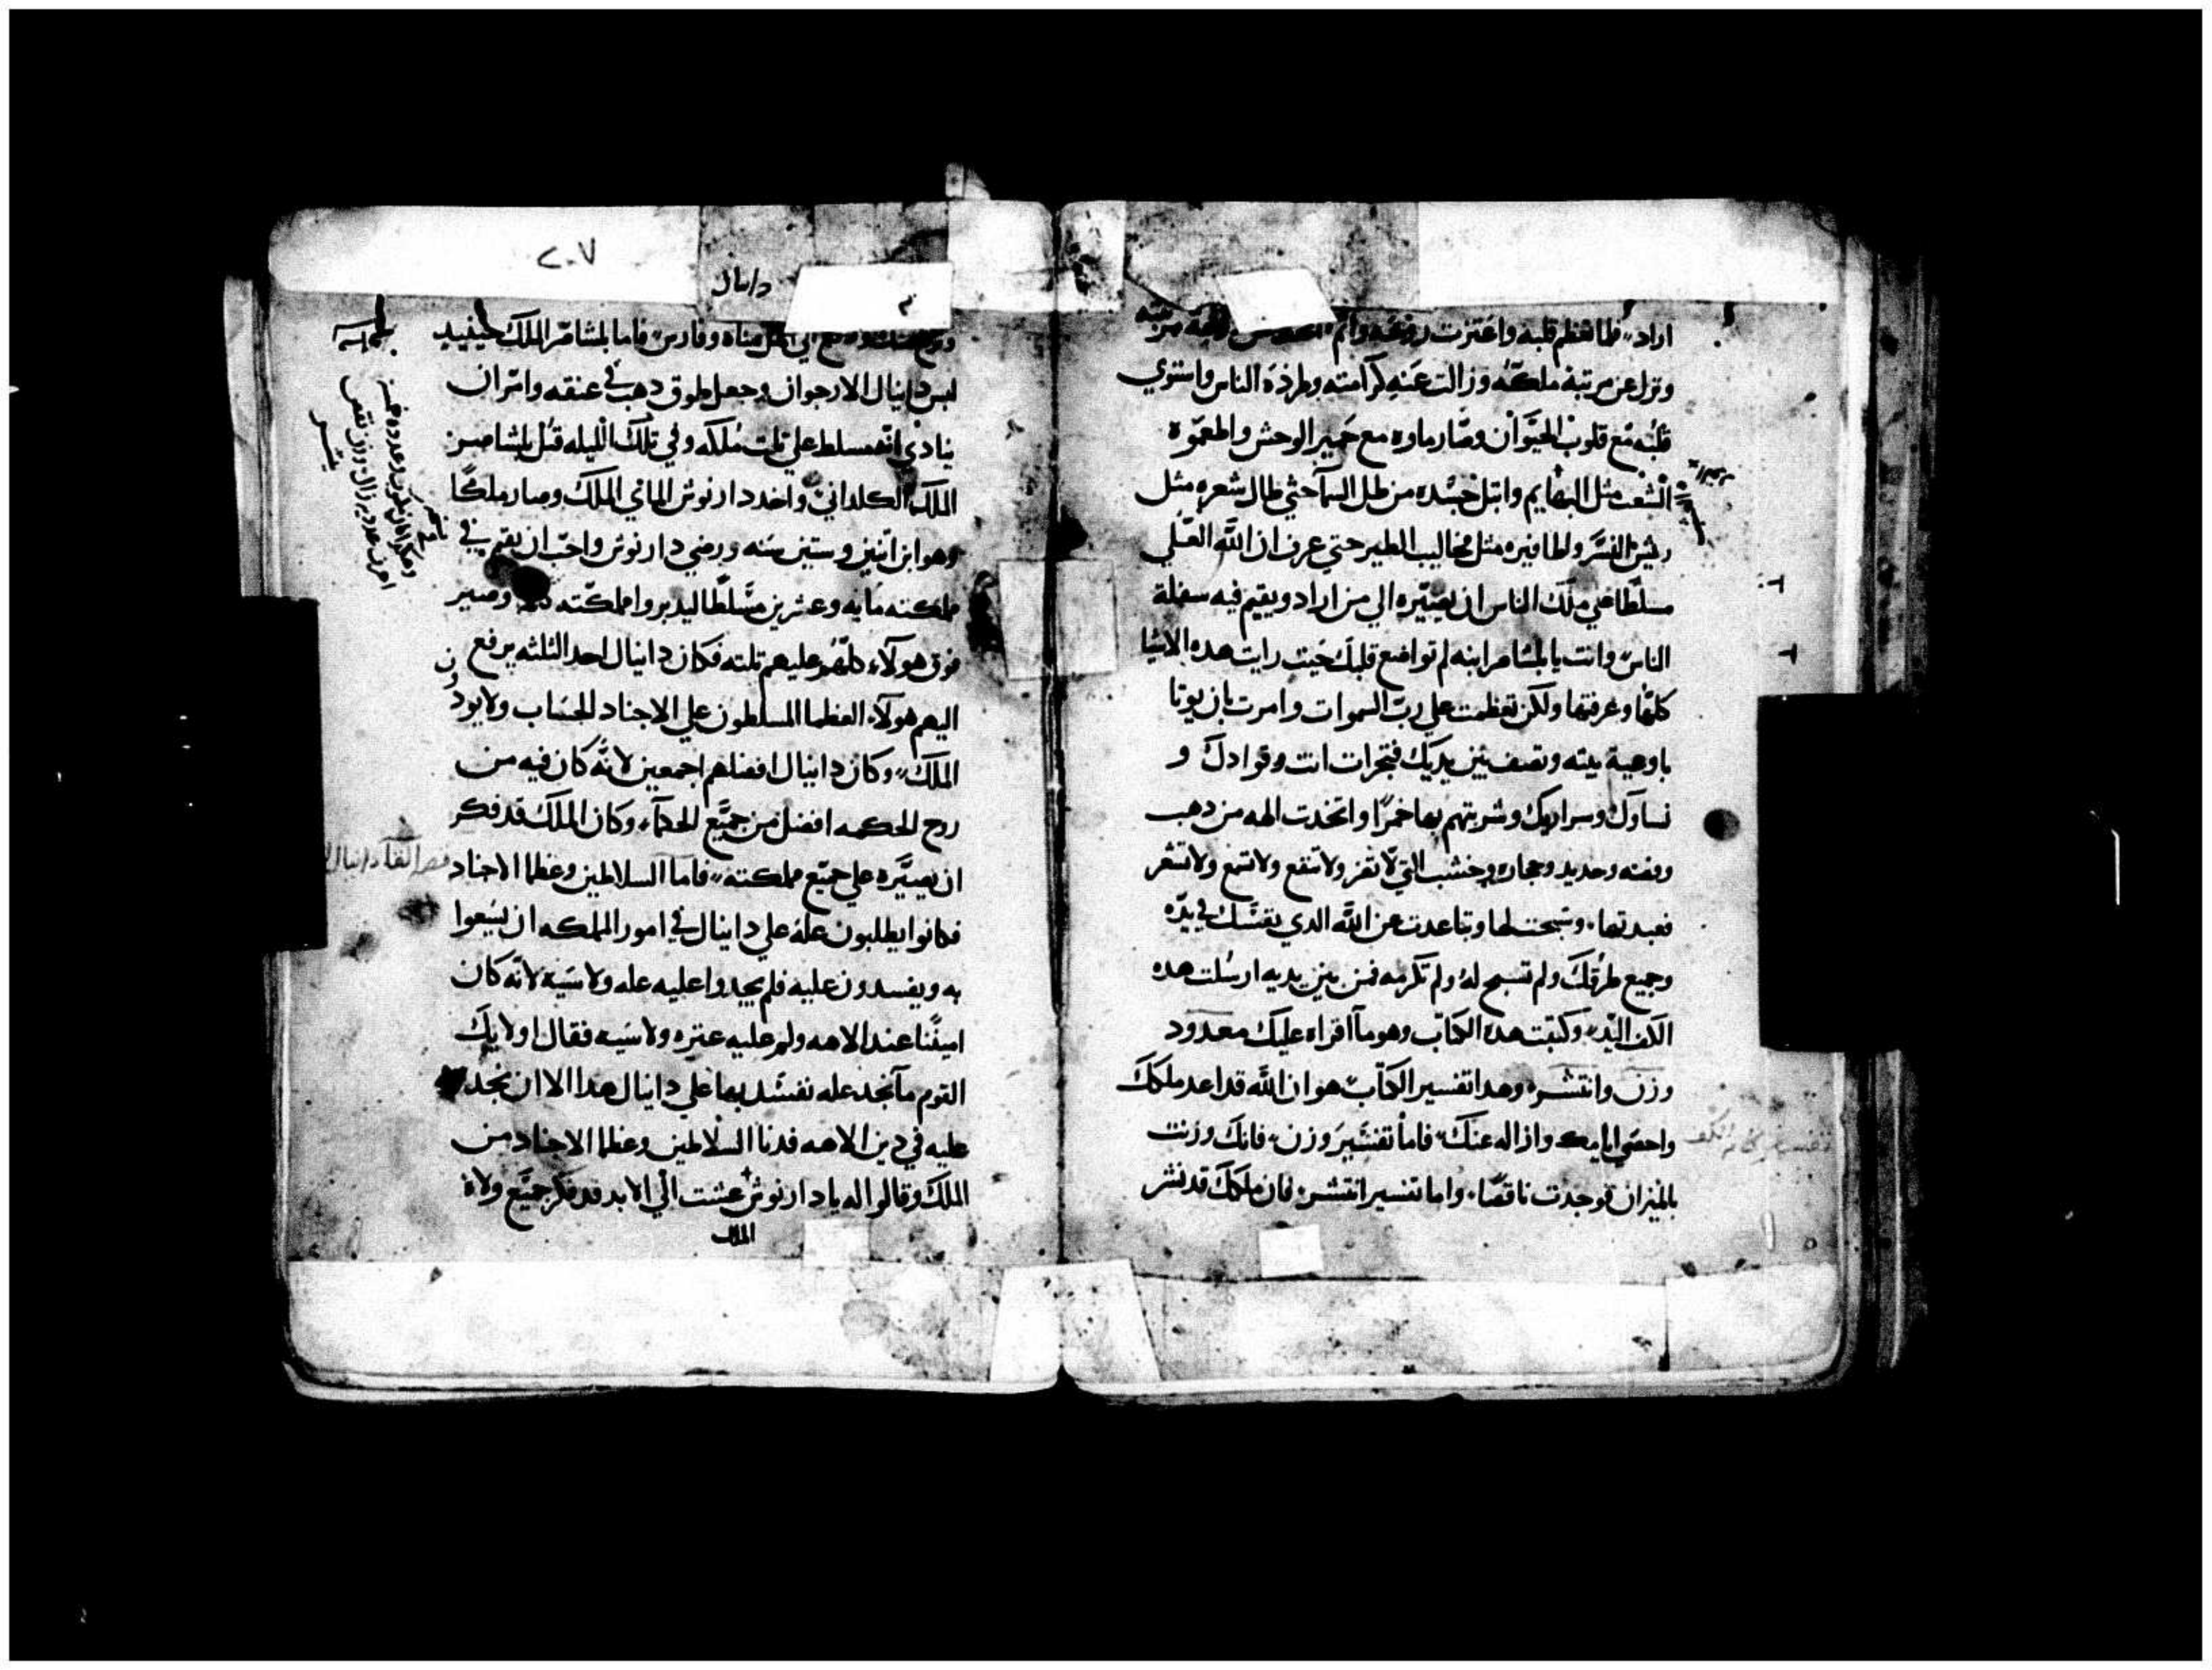 اراد فلما تعظم قلبه واعتزت روحه
ونزل عن مرتبة ملكه وزالت عنه كرامته وطرده الناس واستوي
قلبه مع قلوب الحيوان وصار ماوه مع حمير الوحش واطعموه
العشب مثل البهايم وابتل جسده من طل السما حتي طال شعره مثل
ريش النسر واظافيره مثل مخاليب الطير حتي عرف ان الله العلي
مسلطا علي ملك الناس ان يصيره الي من اراد ويقيم فيه سفلة
الناس وانت يا بلشاصر ابنه لم تواضع قلبك حيت رايت هده الاشيا
كلها وعرفتها ولكن تعظمت علي رب السموات وامرت بان يوتا
باوعية بيته وتصف بين يديك فتجرات انت وقوادك و
نساوك وسراريك وشربتهم بها خمرا واتخدت الهه من دهب
وفضه وحديد وحجاره وخشب التي لا تضر ولا تنفع ولا تسمع ولا تشعر
فعبدتها وسبحت لها وتباعدت عن الله الدي نفسك في يده
وجميع طرقك ولم تسبح له ولم تكرمه فمن بين يديه ارسلت هده
الكف اليد وكتبت هدا الكتاب وهو ما اقراه عليك معدود
وزن وانتشر وهدا تفسير الكتاب هو ان الله قد اعد ملكك
واحصي ايامك وازاله عنك فاما تفسير وزن فانك وزنت
بالميزان فوجدت ناقصا واما تفسير انتشر فان ملكك قد نشر
٢٠٧
دانيال
الي اهل ماه وفارس فاما بلشاصر الملك حينيد
لبس دانيال الارجوان وجعل طوق دهب في عنقه وامر ان
ينادي انه مسلط علي تلت ملكه وفي تلك الليله قتل بلشاصر
الملك الكلداني واخد دارنوش الماني الملك وصار ملكا
وهو ابن اتنين وستين سنه ورضي دارنوش واحب ان يقيم في
مملكته مايه وعشرين مسلطا ليدبروا مملكته وصير
فوق هولاء كلهم عليهم تلته فكان دانيال احد الثلثه يرفع
اليهم هولاء العظما المسلطون علي الاجناد الحساب ولا يودون
الملك وكان دانيال افضلهم اجمعين لانه كان فيه من
روح الحكمه افضل من جميع الحكماء وكان الملك قد فكر
ان يصيره علي جميع مملكته فاما السلاطين وعظما الاجناد
فكانوا يطلبون علة علي دانيال في امور المملكه ان يسعوا
به ويفسدون عليه فلم يجدوا عليه عله ولا سيه لانه كان
امينا عند الاهه ولم عليه عتره ولا سيه فقال اولايك
القوم ما نجد عله نفسد بها علي دانيال هدا الا ان نجد
عليه في دين الاهه فدنا السلاطين وعظما الاجناد من
الملك وقالوا له يا دارنوش عشت الي الابد قد فكر جميع ولاة
الملك